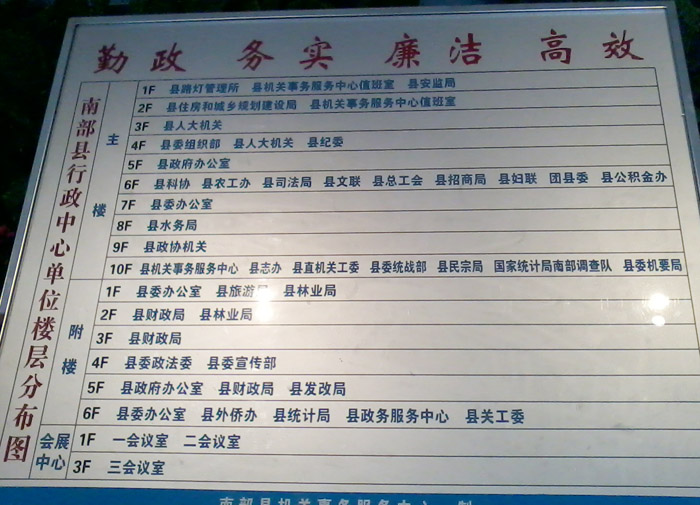 勤政 务实 廉洁 高效
南部县行政中心单位楼层分布图
主楼
1F 县路灯管理所 县机关事务服务中心值班室 县安监局
2F 县住房和城乡规划建设局 县机关事务服务中心值班室
3F 县人大机关
4F 县委组织部 县人大机关 县纪委
5F 县政府办公室
6F 县科协 县农工办 县司法局 县文联 县总工会 县招商局 县妇联 团县委 县公积金办
7F 县委办公室
8F 县水务局
9F 县政协机关
10F 县机关事务服务中心 县志办 县直机关工委 县委统战部 县民宗局 国家统计局南部调查队 县委机要局
附楼
1F 县委办公室 县旅游局 县林业局
2F 县财政局 县林业局
3F 县财政局
4F 县委政法委 县委宣传部
5F 县政府办公室 县财政局 县发改局
6F 县委办公室 县外侨办 县统计局 县政务服务中心 县关工委
会展中心
1F 一会议室 二会议室
3F 三会议室
南部县机关事务服务中心 制